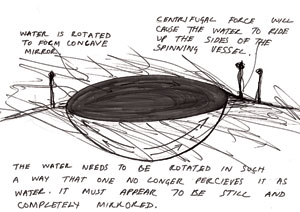 WATER IS ROTATED
TO FORM CONCAVE
MIRROR
CENTRIFUGAL FORCE WILL
CAUSE THE WATER TO RIDE
UP THE SIDES OF THE
SPINNING VESSEL.
THE WATER NEEDS TO BE ROTATED IN SUCH
A WAY THAT ONE NO LONGER PERCIEVES IT AS
WATER. IT MUST APPEAR TO BE STILL AND
COMPLETELY MIRRORED.